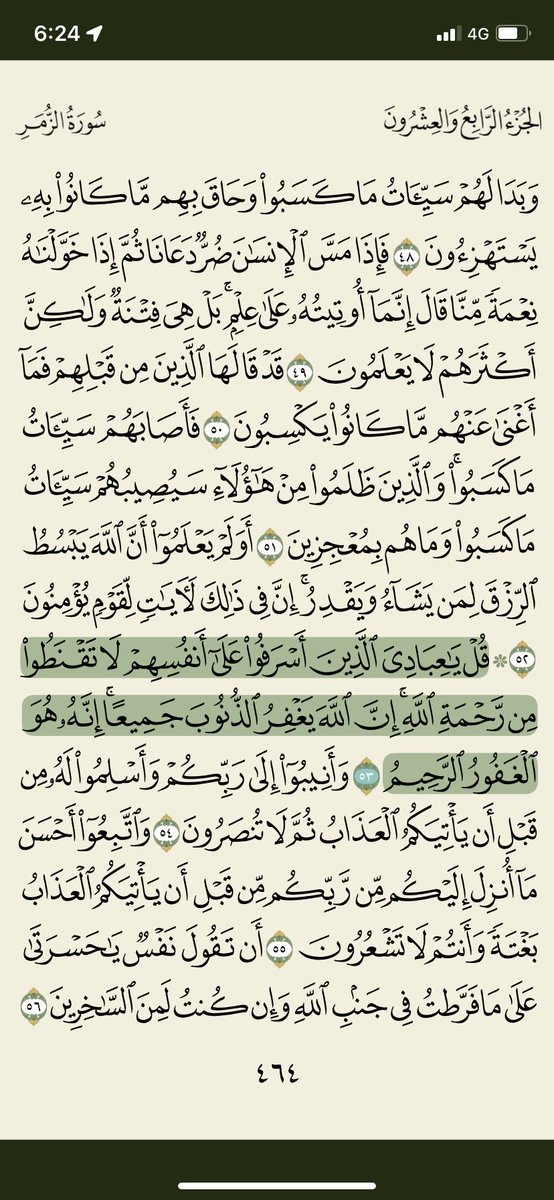 6:24 4G
الجُزْءُ الرَّابِعُ وَالعِشْرُونَ سُورَةُ الزُّمَرِ
وَبَدَا لَهُمْ سَيِّـَٔاتُ مَا كَسَبُوا۟ وَحَاقَ بِهِم مَّا كَانُوا۟ بِهِۦ
يَسْتَهْزِءُونَ ٤٨ فَإِذَا مَسَّ ٱلْإِنسَٰنَ ضُرٌّ دَعَانَا ثُمَّ إِذَا خَوَّلْنَٰهُ
نِعْمَةً مِّنَّا قَالَ إِنَّمَآ أُوتِيتُهُۥ عَلَىٰ عِلْمٍۭ ۚ بَلْ هِىَ فِتْنَةٌ وَلَٰكِنَّ
أَكْثَرَهُمْ لَا يَعْلَمُونَ ٤٩ قَدْ قَالَهَا ٱلَّذِينَ مِن قَبْلِهِمْ فَمَآ
أَغْنَىٰ عَنْهُم مَّا كَانُوا۟ يَكْسِبُونَ ٥٠ فَأَصَابَهُمْ سَيِّـَٔاتُ
مَا كَسَبُوا۟ ۚ وَٱلَّذِينَ ظَلَمُوا۟ مِنْ هَٰٓؤُلَآءِ سَيُصِيبُهُمْ سَيِّـَٔاتُ
مَا كَسَبُوا۟ وَمَا هُم بِمُعْجِزِينَ ٥١ أَوَلَمْ يَعْلَمُوٓا۟ أَنَّ ٱللَّهَ يَبْسُطُ
ٱلرِّزْقَ لِمَن يَشَآءُ وَيَقْدِرُ ۚ إِنَّ فِى ذَٰلِكَ لَءَايَٰتٍ لِّقَوْمٍ يُؤْمِنُونَ
٥٢ ۞ قُلْ يَٰعِبَادِىَ ٱلَّذِينَ أَسْرَفُوا۟ عَلَىٰٓ أَنفُسِهِمْ لَا تَقْنَطُوا۟
مِن رَّحْمَةِ ٱللَّهِ ۚ إِنَّ ٱللَّهَ يَغْفِرُ ٱلذُّنُوبَ جَمِيعًا ۚ إِنَّهُۥ هُوَ
ٱلْغَفُورُ ٱلرَّحِيمُ ٥٣ وَأَنِيبُوٓا۟ إِلَىٰ رَبِّكُمْ وَأَسْلِمُوا۟ لَهُۥ مِن
قَبْلِ أَن يَأْتِيَكُمُ ٱلْعَذَابُ ثُمَّ لَا تُنصَرُونَ ٥٤ وَٱتَّبِعُوٓا۟ أَحْسَنَ
مَآ أُنزِلَ إِلَيْكُم مِّن رَّبِّكُم مِّن قَبْلِ أَن يَأْتِيَكُمُ ٱلْعَذَابُ
بَغْتَةً وَأَنتُمْ لَا تَشْعُرُونَ ٥٥ أَن تَقُولَ نَفْسٌ يَٰحَسْرَتَىٰ
عَلَىٰ مَا فَرَّطتُ فِى جَنۢبِ ٱللَّهِ وَإِن كُنتُ لَمِنَ ٱلسَّٰخِرِينَ ٥٦
٤٦٤